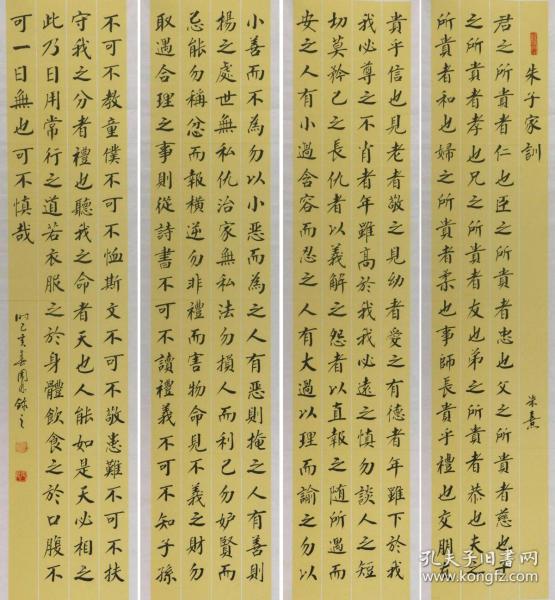 朱子家訓 朱熹
君之所貴者仁也臣之所貴者忠也父之所貴者慈也子
之所貴者孝也兄之所貴者友也弟之所貴者恭也夫之
所貴者和也婦之所貴者柔也事師長貴乎禮也交朋友
貴乎信也見老者敬之見幼者愛之有德者年雖下於我
我必尊之不肖者年雖高於我我必遠之慎勿談人之短
切莫矜己之長仇者以義解之怨者以直報之隨所遇而
安之人有小過含容而忍之人有大過以理而諭之勿以
小善而不為勿以小惡而為之人有惡則掩之人有善則
揚之處世無私仇治家無私法勿損人而利己勿妒賢而
忌能勿稱忿而報橫逆勿非禮而害物命見不義之財勿
取遇合理之事則從詩書不可不讀禮義不可不知子孫
不可不教童僕不可不恤斯文不可不敬患難不可不扶
守我之分者禮也聽我之命者天也人能如是天必相之
此乃日用常行之道若衣服之於身體飲食之於口腹不
可一日無也可不慎哉
時己亥 錄之
孔夫子旧书网
www.kongfz.com